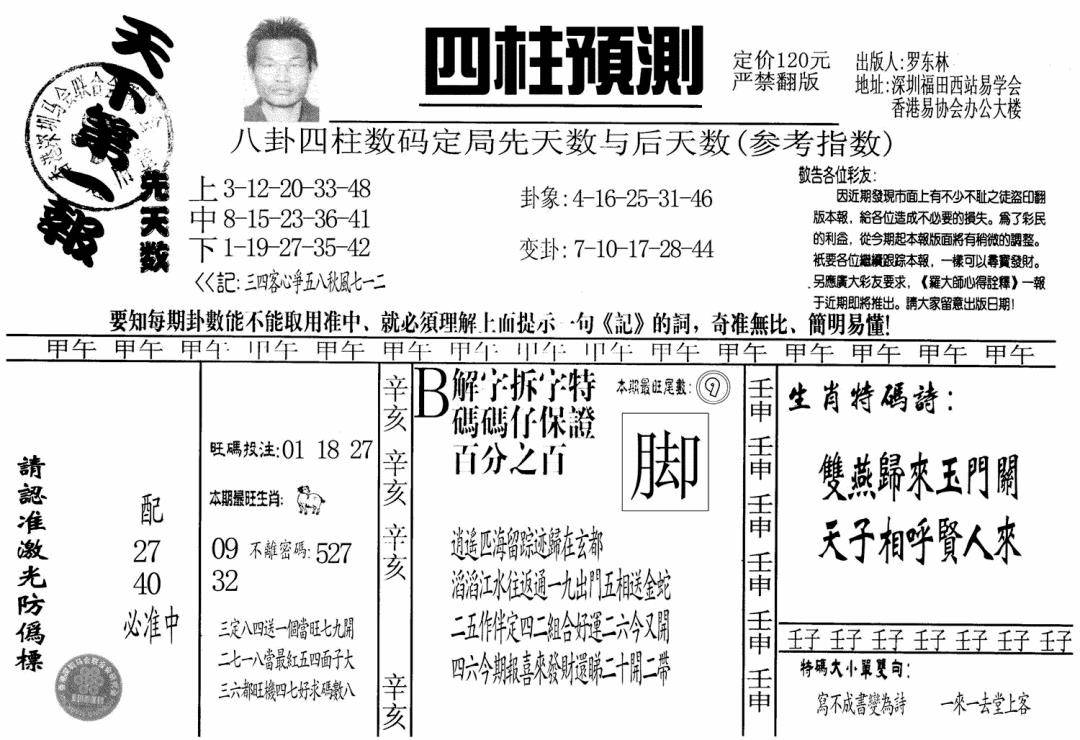 天下第一報
四柱預測
定价120元
严禁翻版
出版人:罗东林
地址:深圳福田西站易学会
香港易协会办公大楼
八卦四柱数码定局先天数与后天数(参考指数)
先天数
上 3-12-20-33-48
中 8-15-23-36-41
下 1-19-27-35-42
<<記:三四客心爭五八秋風七一二
卦象:4-16-25-31-46
变卦:7-10-17-28-44
敬告各位彩友:
因近期發現市面上有不少不耻之徒盜印翻
版本報，給各位造成不必要的損失。爲了彩民
的利益，從今期起本報版面將有稍微的調整。
衹要各位繼續跟踪本報，一樣可以尋寶發財。
另應廣大彩友要求，《羅大師心得詮釋》一報
于近期即將推出。請大家留意出版日期!
要知每期卦數能不能取用准中、就必須理解上面提示一句《記》的詞，奇准無比、簡明易懂!
甲午 甲午 甲午 甲午 甲午 甲午 甲午 甲午 甲午 甲午 甲午 甲午 甲午 甲午 甲午
請認准激光防僞標
配
27
40
必准中
旺碼投注:01 18 27
本期最旺生肖:
09 不離密碼:527
32
三定八四送一個當旺七九開
二七一八當最紅五四面子大
三六都旺機四七好求碼數八
辛亥 辛亥 辛亥 辛亥
B 解字拆字特
碼碼仔保證
百分之百
本期最旺尾數:9
脚
逍遥四海留踪迹歸在玄都
滔滔江水往返通一九出門五相送金蛇
二五作伴定四二組合好運二六今又開
四六今期報喜來發財還睇二十開二帶
壬申 壬申 壬申 壬申 壬申 壬申
生肖特碼詩:
雙燕歸來玉門關
天子相呼賢人來
壬子 壬子 壬子 壬子 壬子 壬子 壬子
特碼大小單雙句:
寫不成書變為詩 一來一去堂上客